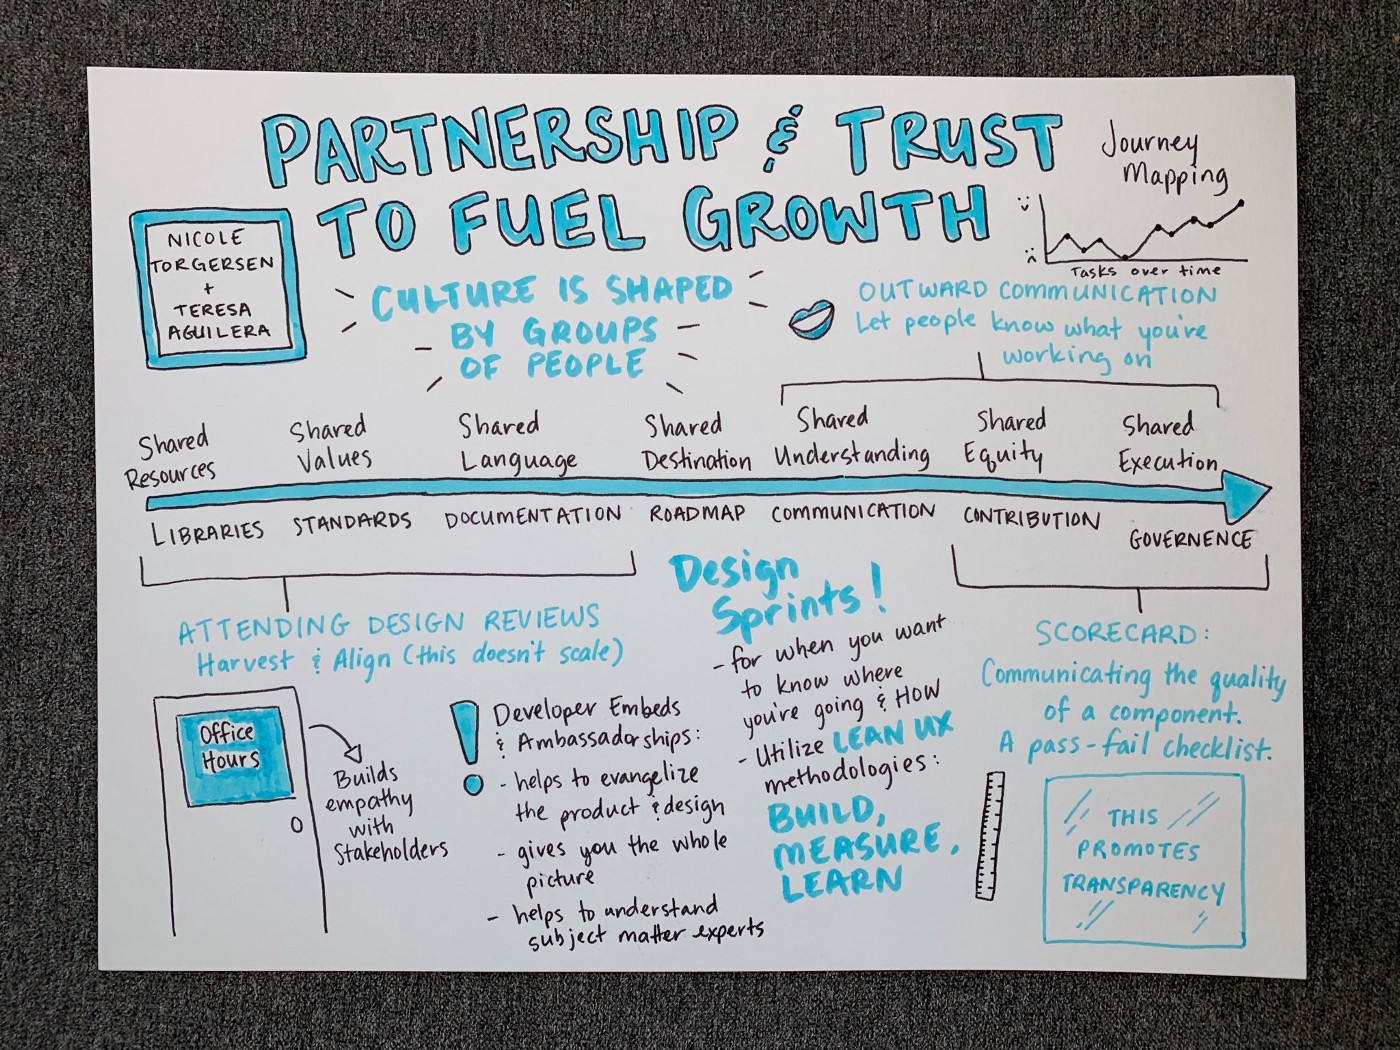 PARTNERSHIP & TRUST
TO FUEL GROWTH
NICOLE
TORGERSEN
+
TERESA
AGUILERA
CULTURE IS SHAPED
BY GROUPS
OF PEOPLE
Journey
Mapping
Tasks over time
OUTWARD COMMUNICATION
Let people know what you're
working on
Shared
Resources
Shared
Values
Shared
Language
Shared
Destination
Shared
Understanding
Shared
Equity
Shared
Execution
LIBRARIES
STANDARDS
DOCUMENTATION
ROADMAP
COMMUNICATION
CONTRIBUTION
GOVERNENCE
ATTENDING DESIGN REVIEWS
Harvest & Align (this doesn't scale)
Office
Hours
Builds
empathy
with
Stakeholders
Developer Embeds
& Ambassadorships:
- helps to evangelize
the product & design
- gives you the whole
picture
- helps to understand
subject matter experts
Design
Sprints!
- for when you want
to know where
you're going & HOW
- Utilize LEAN UX
methodologies:
BUILD,
MEASURE,
LEARN
SCORECARD:
Communicating the quality
of a component.
A pass-fail checklist.
THIS
PROMOTES
TRANSPARENCY